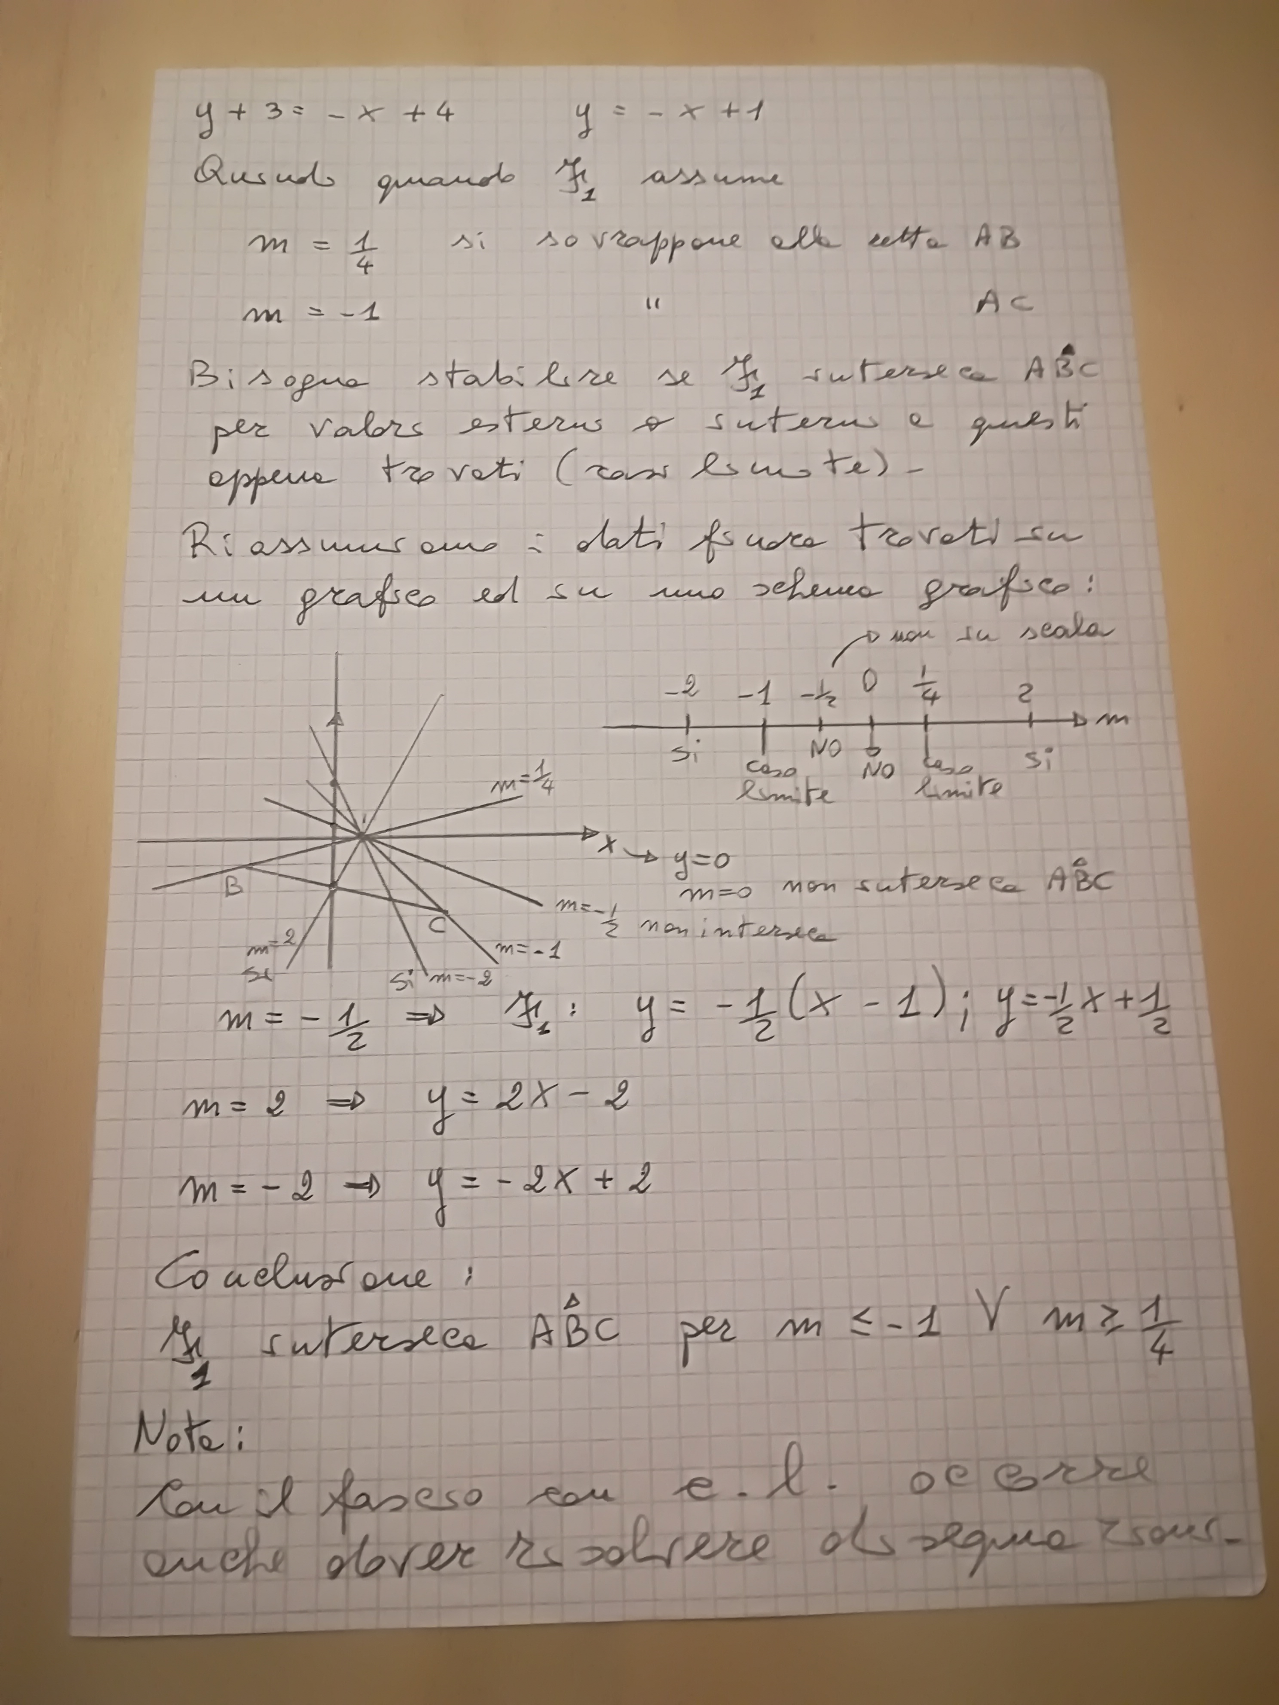 y + 3 = - x + 4   y = - x + 1
Quindi quando F₁ assume
m = 1/4 si sovrappone alla retta AB
m = -1 " AC
Bisogna stabilire se F₁ interseca ABC
per valori esterni o interni a questi
appena trovati (casi limite) -
Riassumiamo i dati finora trovati su
un grafico ed su uno schema grafico:
non su scala
-2 -1 -1/2 0 1/4 2
m
Si caso limite NO NO caso limite Si
m=1/4
x → y=0
B
m=0 non interseca ABC
m=-1/2 non interseca
C
m=2 Si
Si m=-2
m=-1
m = -1/2 ⇒ F₁: y = -1/2 (x - 1); y = -1/2 x + 1/2
m = 2 ⇒ y = 2x - 2
m = -2 ⇒ y = -2x + 2
Conclusione:
F₁ interseca ABC per m ≤ -1 V m ≥ 1/4
Nota:
Con il fascio con c.l. occorre
anche dover risolvere disequazioni-